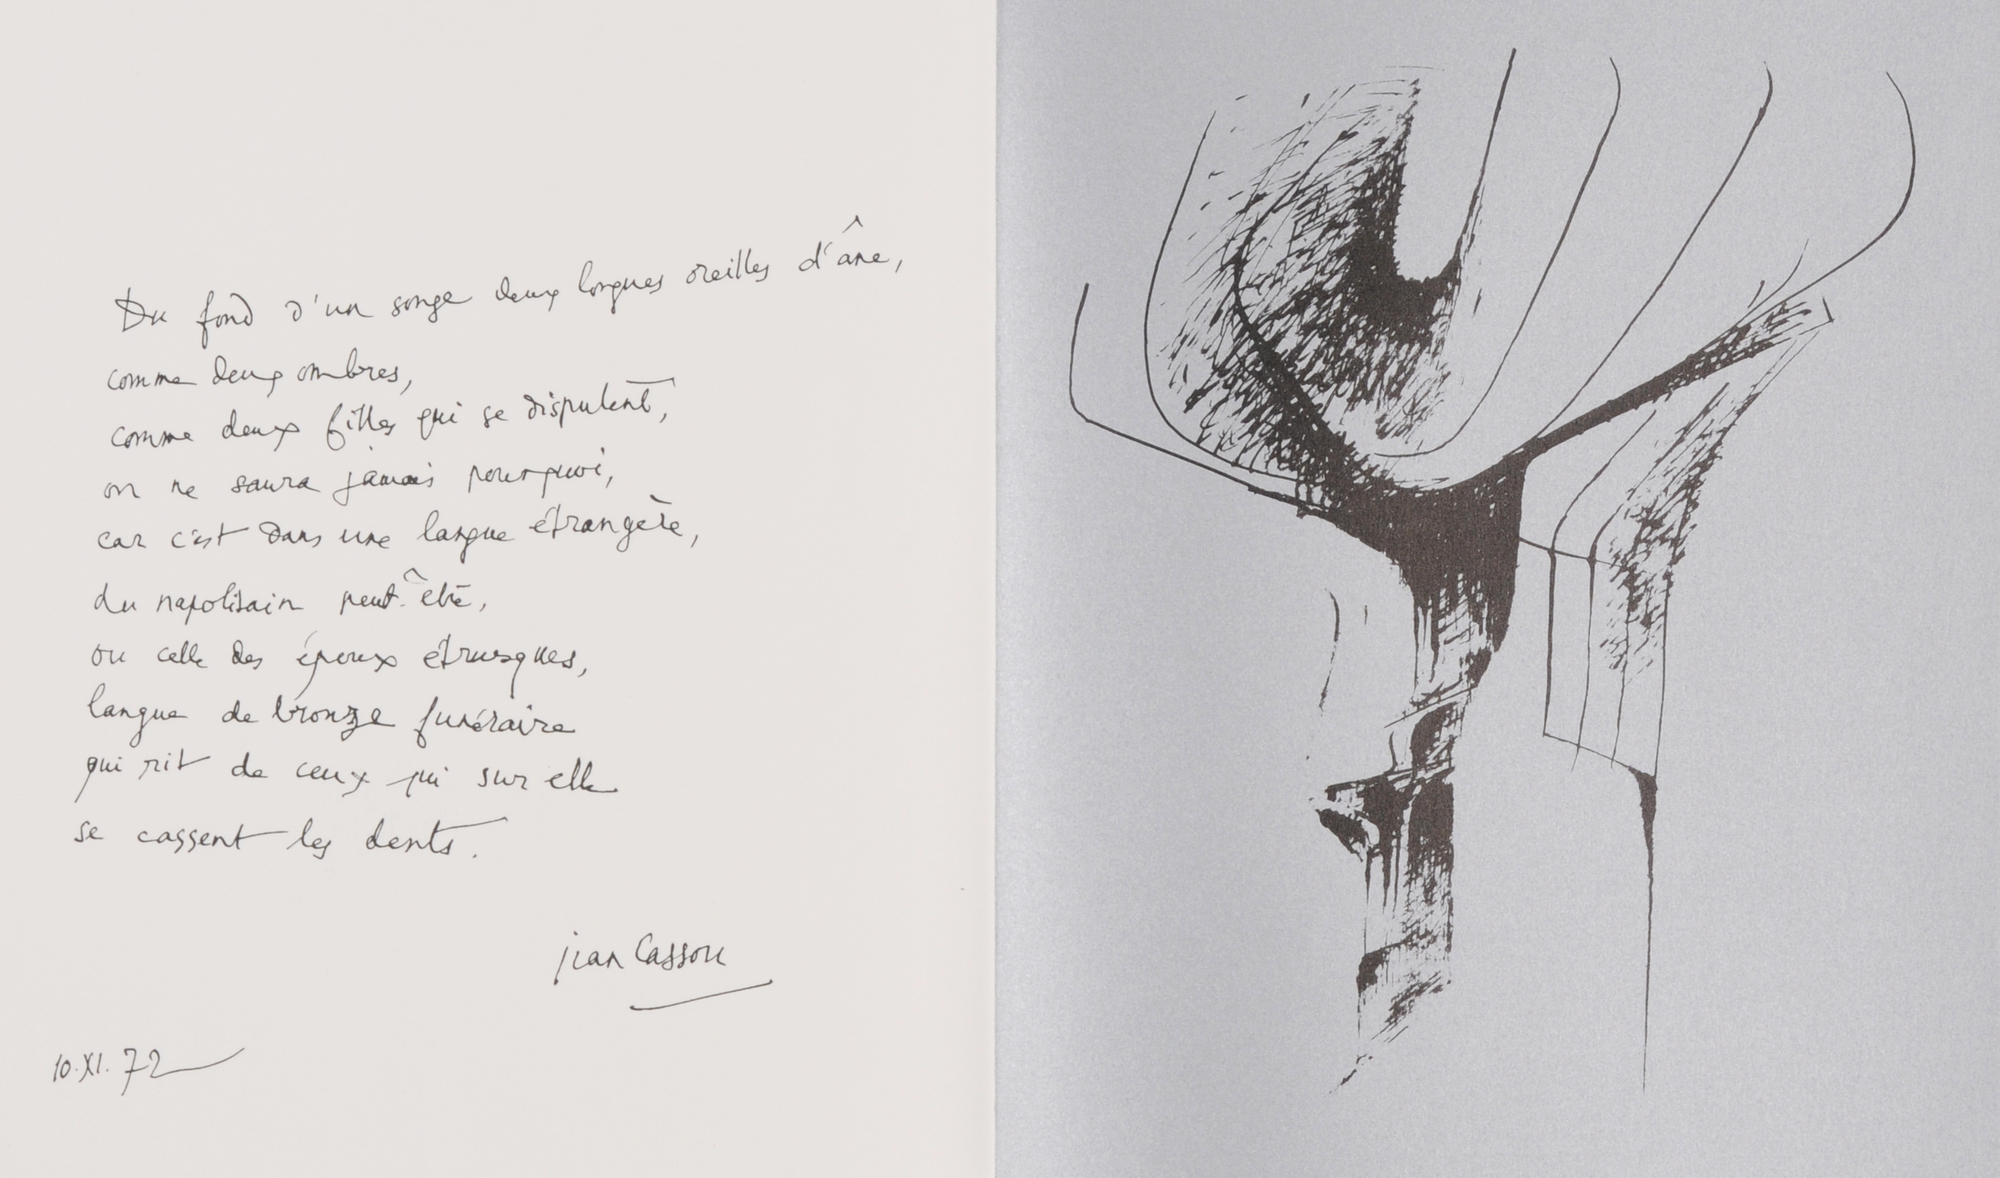 Du fond d'un songe deux longues oreilles d'âne,
comme deux ombres,
comme deux filles qui se disputent,
on ne saura jamais pourquoi,
car c'est dans une langue étrangère,
du napolitain peut-être,
ou celle des époux étrusques,
langue de bronze funéraire
qui rit de ceux qui sur elle
se cassent les dents.
jean Cassou
10.XI.72